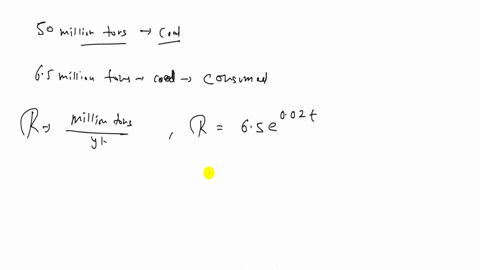 50 million tons → coal
6.5 million tons → coal → consumed
R → million tons / yr , R = 6.5 e^0.02t